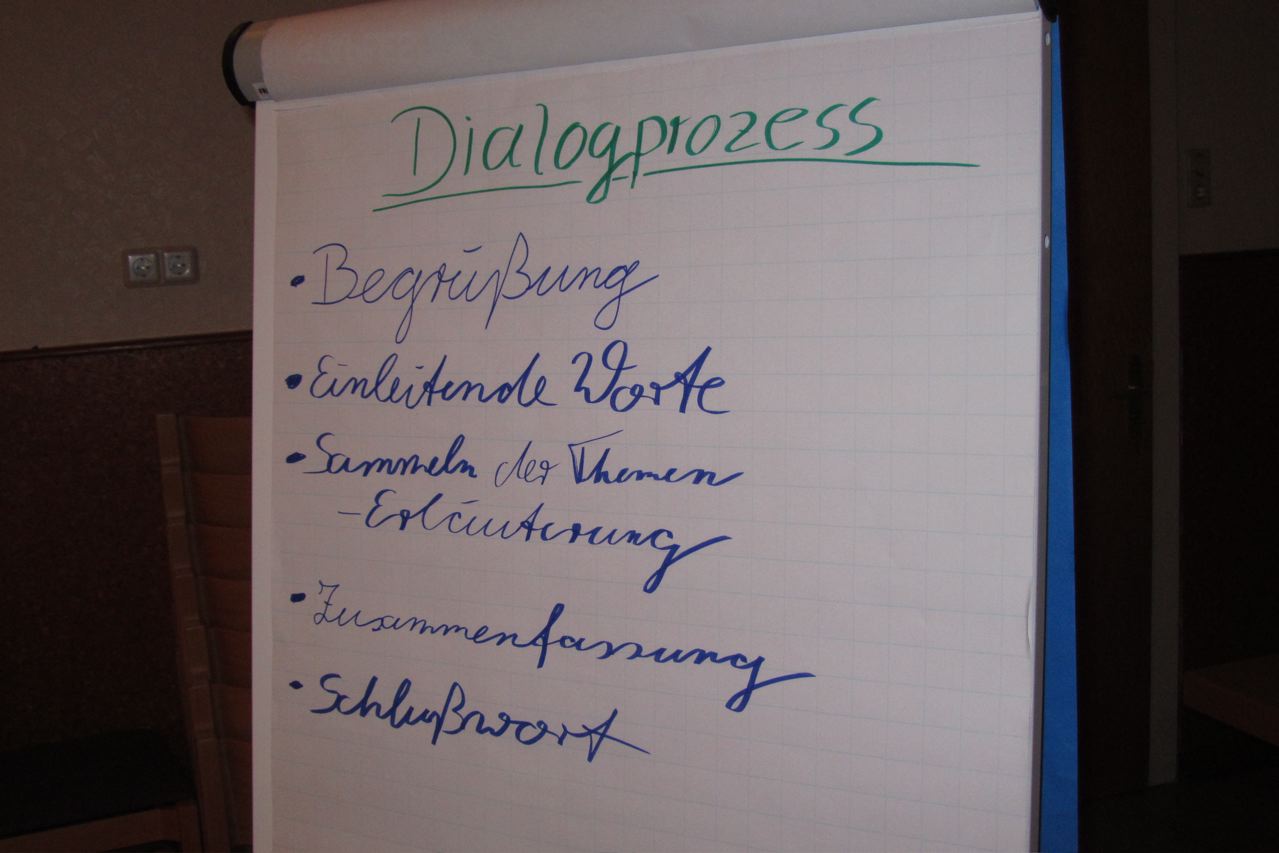 Dialogprozess
• Begrüßung
• Einleitende Worte
• Sammeln der Themen
- Erläuterung
• Zusammenfassung
• Schlußwort